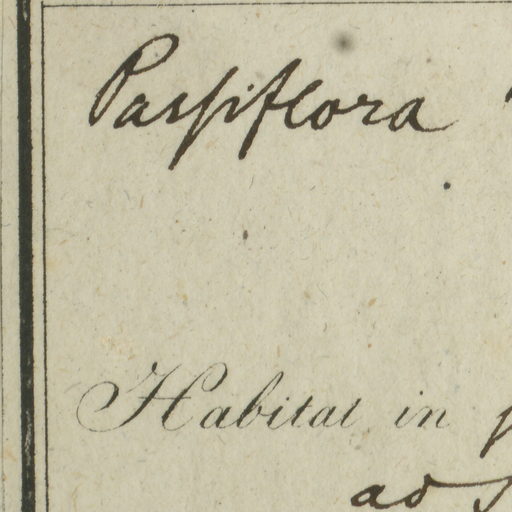 Passiflora
Habitat in
ad